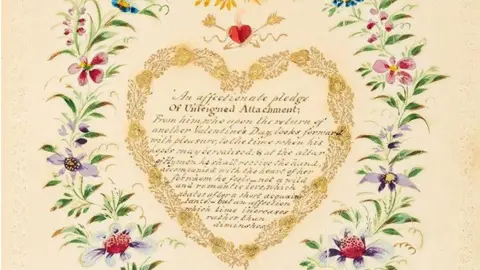 An affectionate pledge
Of Unfeigned Attachment;
From him, who upon the return of
another Valentine's Day, looks forward
with pleasure, to the time when his
may be realised, & at the altar
of Hymen he shall receive the hand,
accompanied with the heart of her
for whom he feels not a wild
and romantic love, which
abates after a short acquain
tance but an affection
which time increases
rather than
diminishes